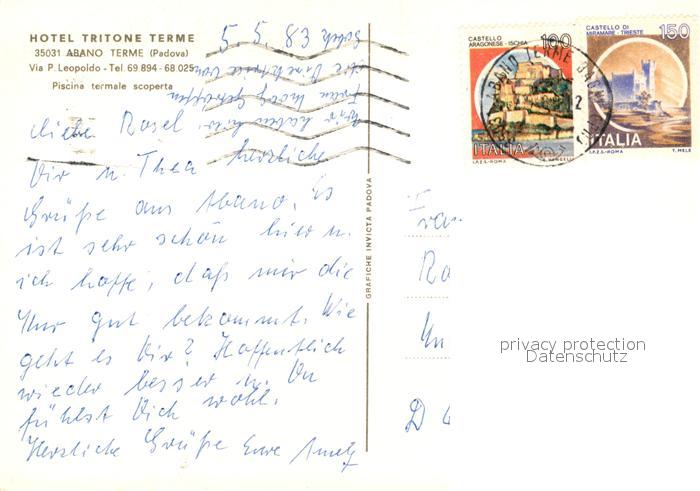 HOTEL TRITONE TERME
35031 ABANO TERME (Padova)
Via P. Leopoldo - Tel. 69.894 - 68.025
Piscina termale scoperta
5. 5. 83
Liebe Rosel,
Dir u. Thea herzliche
Grüße aus Abano. Es
ist sehr schön hier u.
ich hoffe, daß mir die
Kur gut bekommt. Wie
geht es Dir? Hoffentlich
wieder besser u. Du
fühlst Dich wohl.
Herzliche Grüße Eure
Wir haben hier
GRAFICHE INVICTA PADOVA
CASTELLO
ARAGONESE - ISCHIA
100
ITALIA
I.P.Z.S. - ROMA
CASTELLO DI
MIRAMARE - TRIESTE
150
ITALIA
I.P.Z.S. - ROMA
T. MELE
ABANO TERME
privacy protection
Datenschutz
D 4